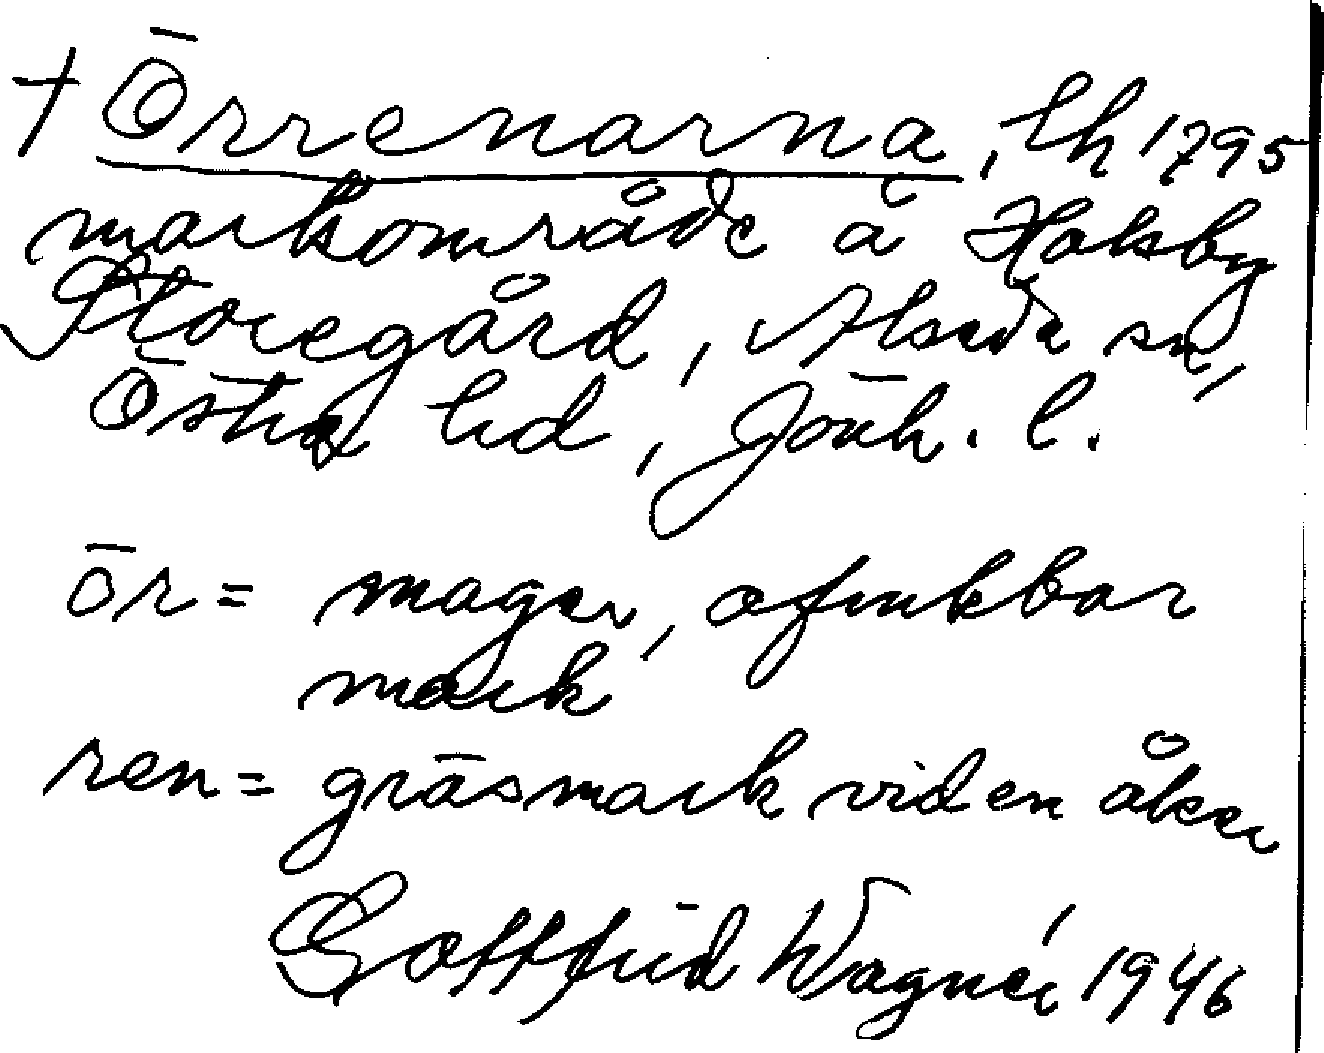 † Örrenarna, lh 1795
markområde å Holsby
Storegård, Alseda sn,
Östra hd, Jönk. l.
ör = mager, ofruktbar
mark
ren = gräsmark vid en åker
Gottfrid Wagnér 1946